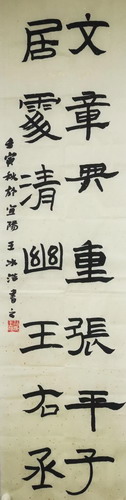 文章典重張平子
居處清幽王右丞
壬寅秋於宜陽王冰沼書之